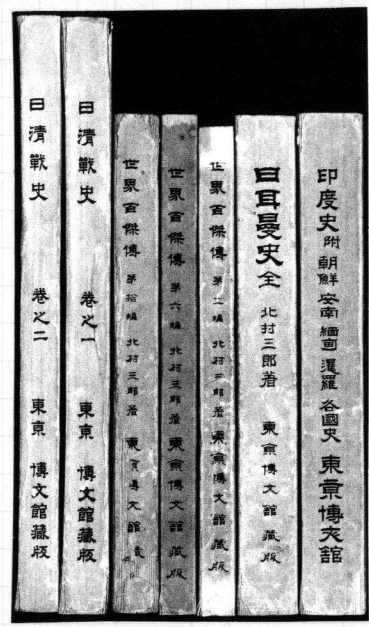 印度史 附 朝鮮 安南 緬甸 暹羅 各國史 東京博文館
日耳曼史 全 北村三郎着 東京博文館藏版
世界百傑傳 第二編 北村三郎着 東京博文館藏版
世界百傑傳 第六編 北村三郎着 東京博文館藏版
世界百傑傳 第拾編 北村三郎着 東京博文館藏
日清戰史 卷之一 東京 博文館藏版
日清戰史 卷之二 東京 博文館藏版